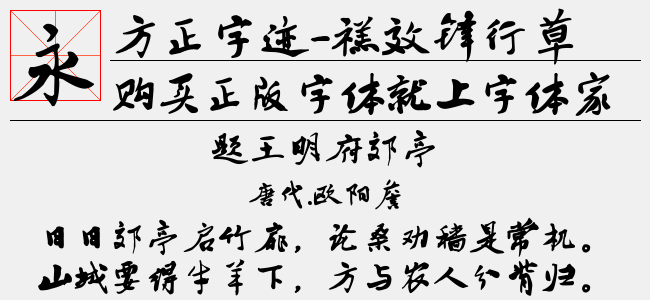 永
方正字迹-禚效锋行草
购买正版字体就上字体家
题王明府郊亭
唐代.欧阳詹
日日郊亭启竹扉，论桑劝穑是常机。
山城要得牛羊下，方与农人分背归。